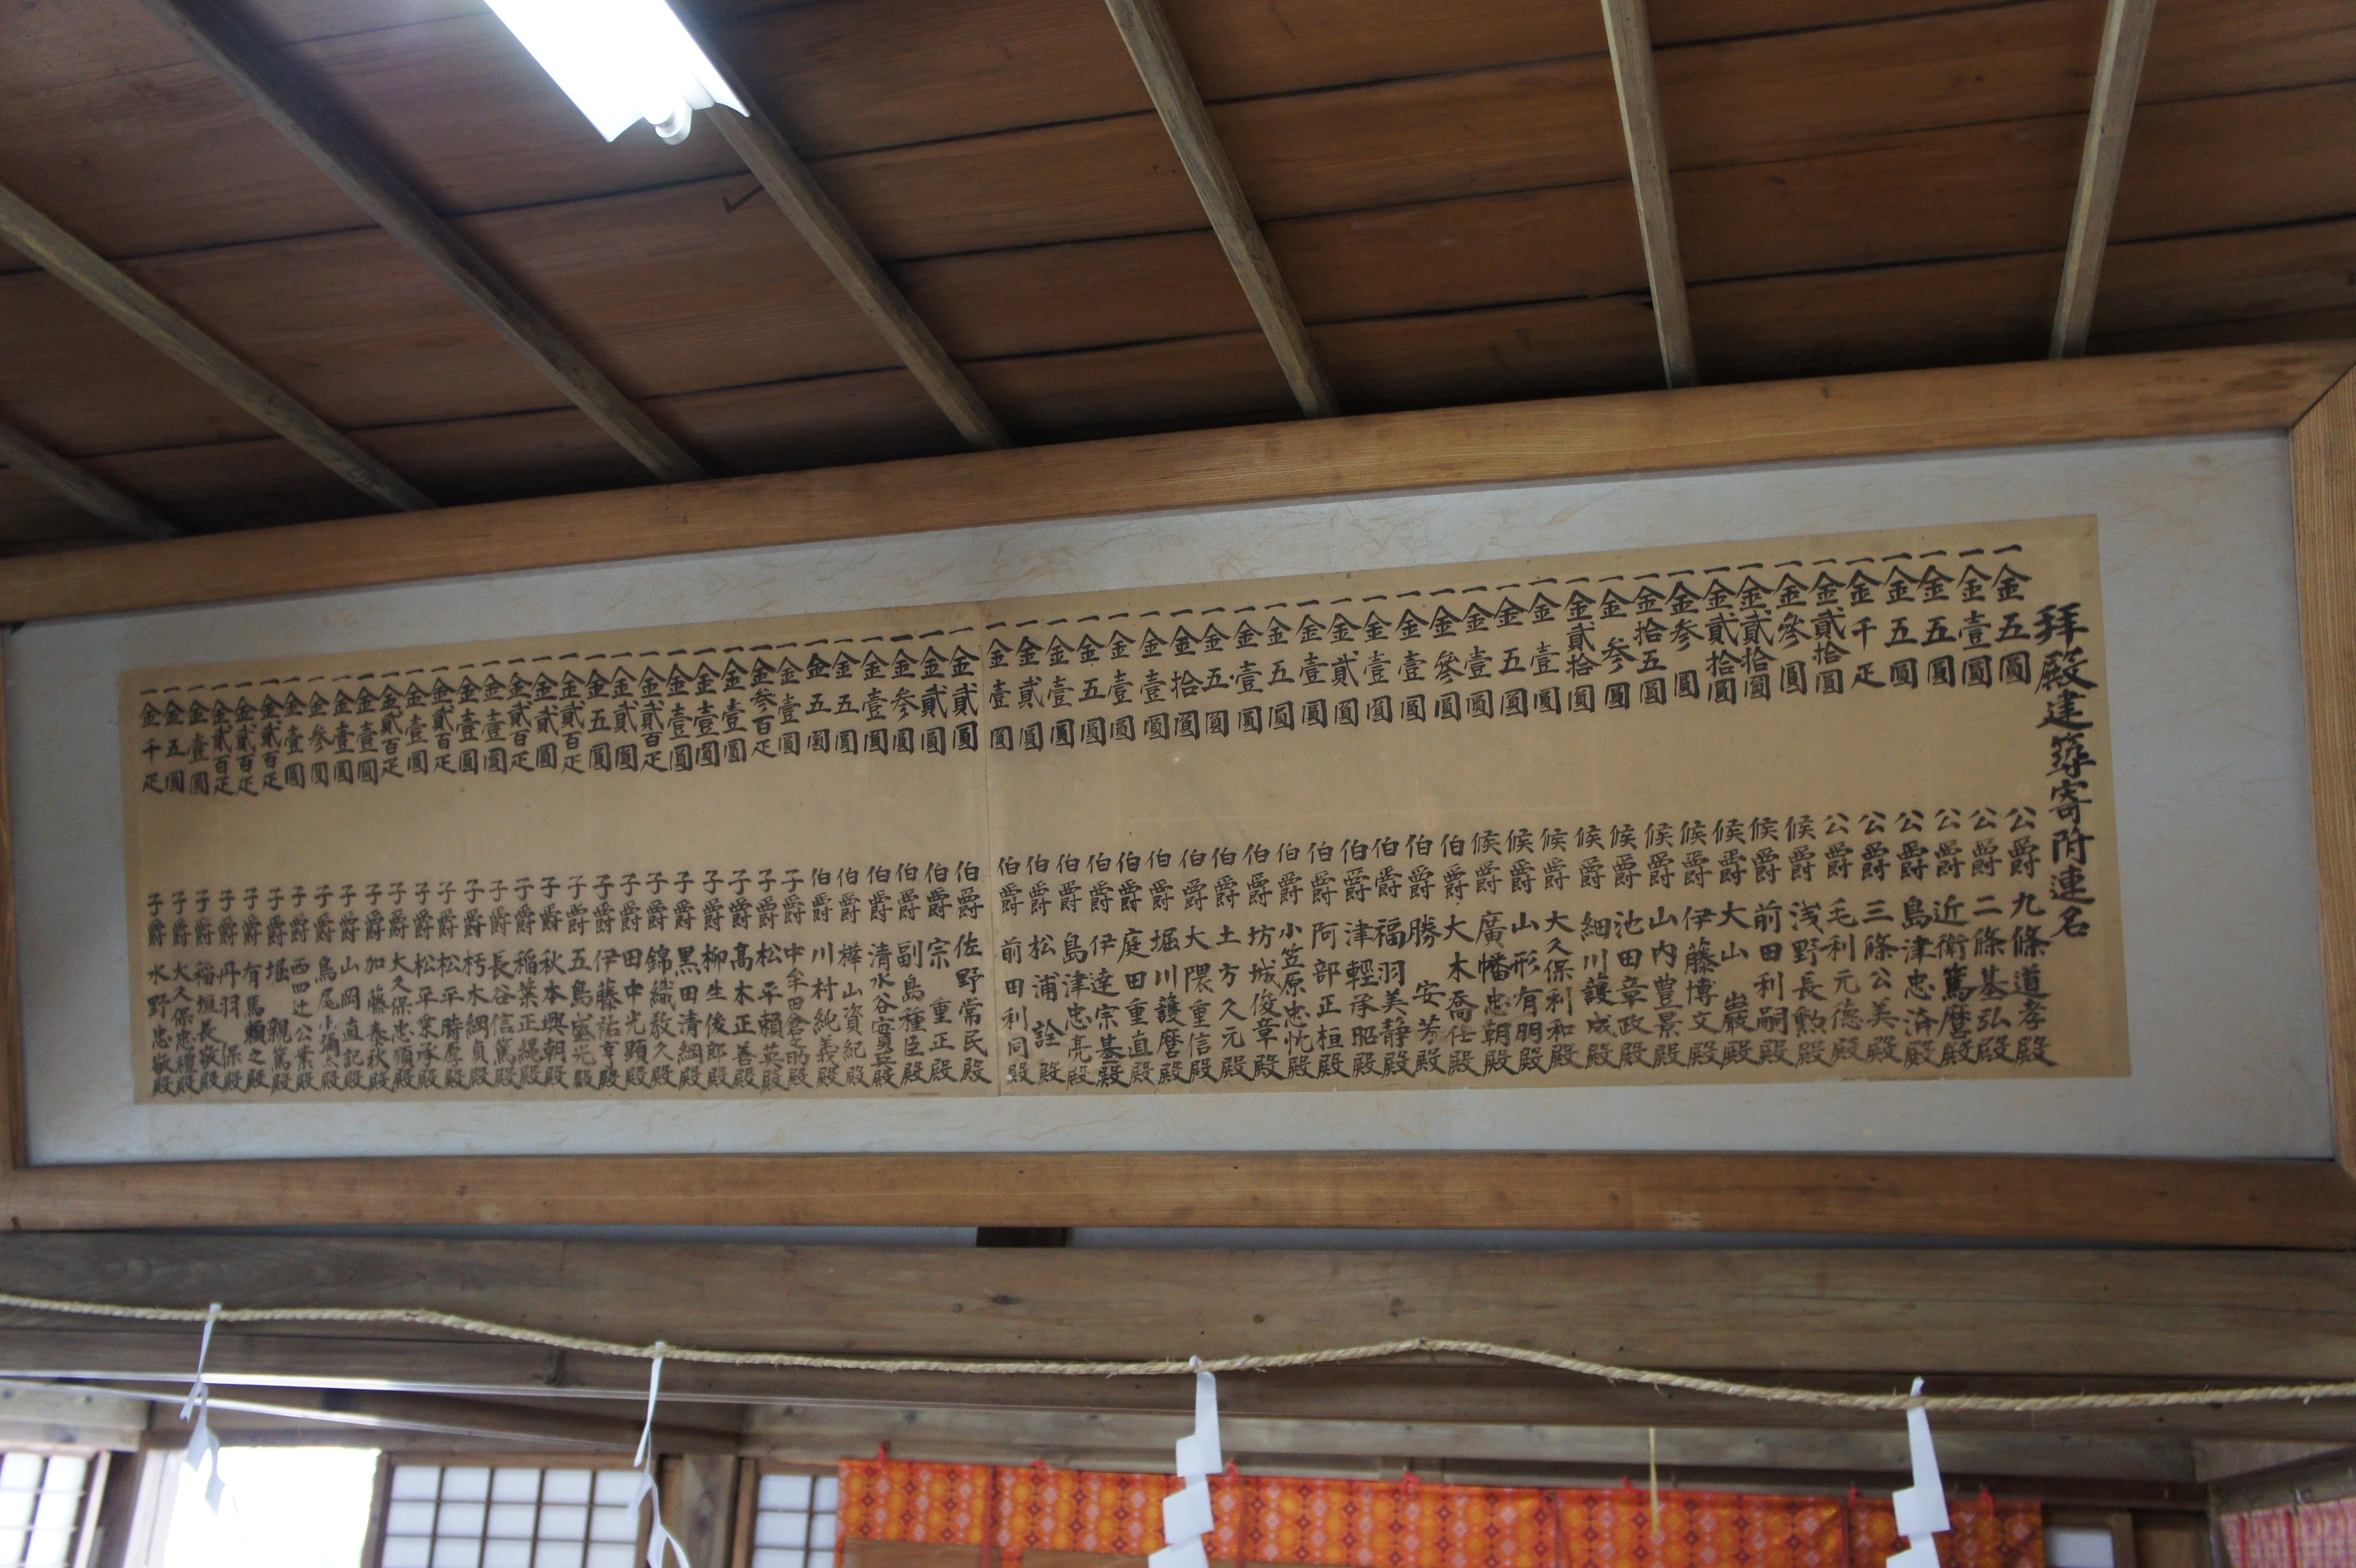 拜殿建築寄附連名
一金五圓 公爵九條道孝殿
一金壹圓 公爵二條基弘殿
一金五圓 公爵近衛篤麿殿
一金五圓 公爵島津忠済殿
一金千疋 公爵三條公美殿
一金貳拾圓 公爵毛利元德殿
一金參圓 候爵浅野長勲殿
一金貳拾圓 候爵前田利嗣殿
一金貳拾圓 候爵大山巖殿
一金参圓 候爵伊藤博文殿
一金拾五圓 候爵山内豊景殿
一金参圓 候爵池田章政殿
一金貳拾圓 候爵細川護成殿
一金壹圓 候爵大久保利和殿
一金五圓 候爵山形有朋殿
一金壹圓 候爵廣幡忠朝殿
一金參圓 伯爵大木喬任殿
一金壹圓 伯爵勝安芳殿
一金壹圓 伯爵福羽美静殿
一金貳圓 伯爵津輕承昭殿
一金壹圓 伯爵阿部正桓殿
一金五圓 伯爵小笠原忠忱殿
一金壹圓 伯爵坊城俊章殿
一金五圓 伯爵土方久元殿
一金拾圓 伯爵大隈重信殿
一金壹圓 伯爵堀川護麿殿
一金壹圓 伯爵庭田重直殿
一金五圓 伯爵伊達宗基殿
一金壹圓 伯爵島津忠亮殿
一金貳圓 伯爵松浦詮殿
一金壹圓 伯爵前田利同殿
一金貳圓 伯爵佐野常民殿
一金貳圓 伯爵宗重正殿
一金参圓 伯爵副島種臣殿
一金壹圓 伯爵清水谷實英殿
一金五圓 伯爵樺山資紀殿
一金五圓 伯爵川村純義殿
一金壹圓 子爵中牟田倉之助殿
一金参百疋 子爵松平頼英殿
一金壹圓 子爵髙木正善殿
一金壹圓 子爵柳生俊郎殿
一金壹圓 子爵黒田清綱殿
一金貳百疋 子爵錦織教久殿
一金貳圓 子爵田中光顕殿
一金五圓 子爵伊藤祐亨殿
一金貳百疋 子爵五島盛光殿
一金貳圓 子爵秋本興朝殿
一金貳百疋 子爵稲葉正縄殿
一金壹圓 子爵長谷信篤殿
一金壹圓 子爵朽木綱貞殿
一金貳百疋 子爵松平時厚殿
一金壹圓 子爵松平乗承殿
一金貳百疋 子爵大久保忠順殿
一金壹圓 子爵加藤泰秋殿
一金壹圓 子爵山岡直記殿
一金参圓 子爵鳥尾小彌太殿
一金壹圓 子爵西四辻公業殿
一金貳百疋 子爵堀親篤殿
一金貳百疋 子爵有馬頼之殿
一金貳百疋 子爵丹羽保殿
一金壹圓 子爵稲垣長敬殿
一金五圓 子爵大久保忠禮殿
一金千疋 子爵水野忠敬殿